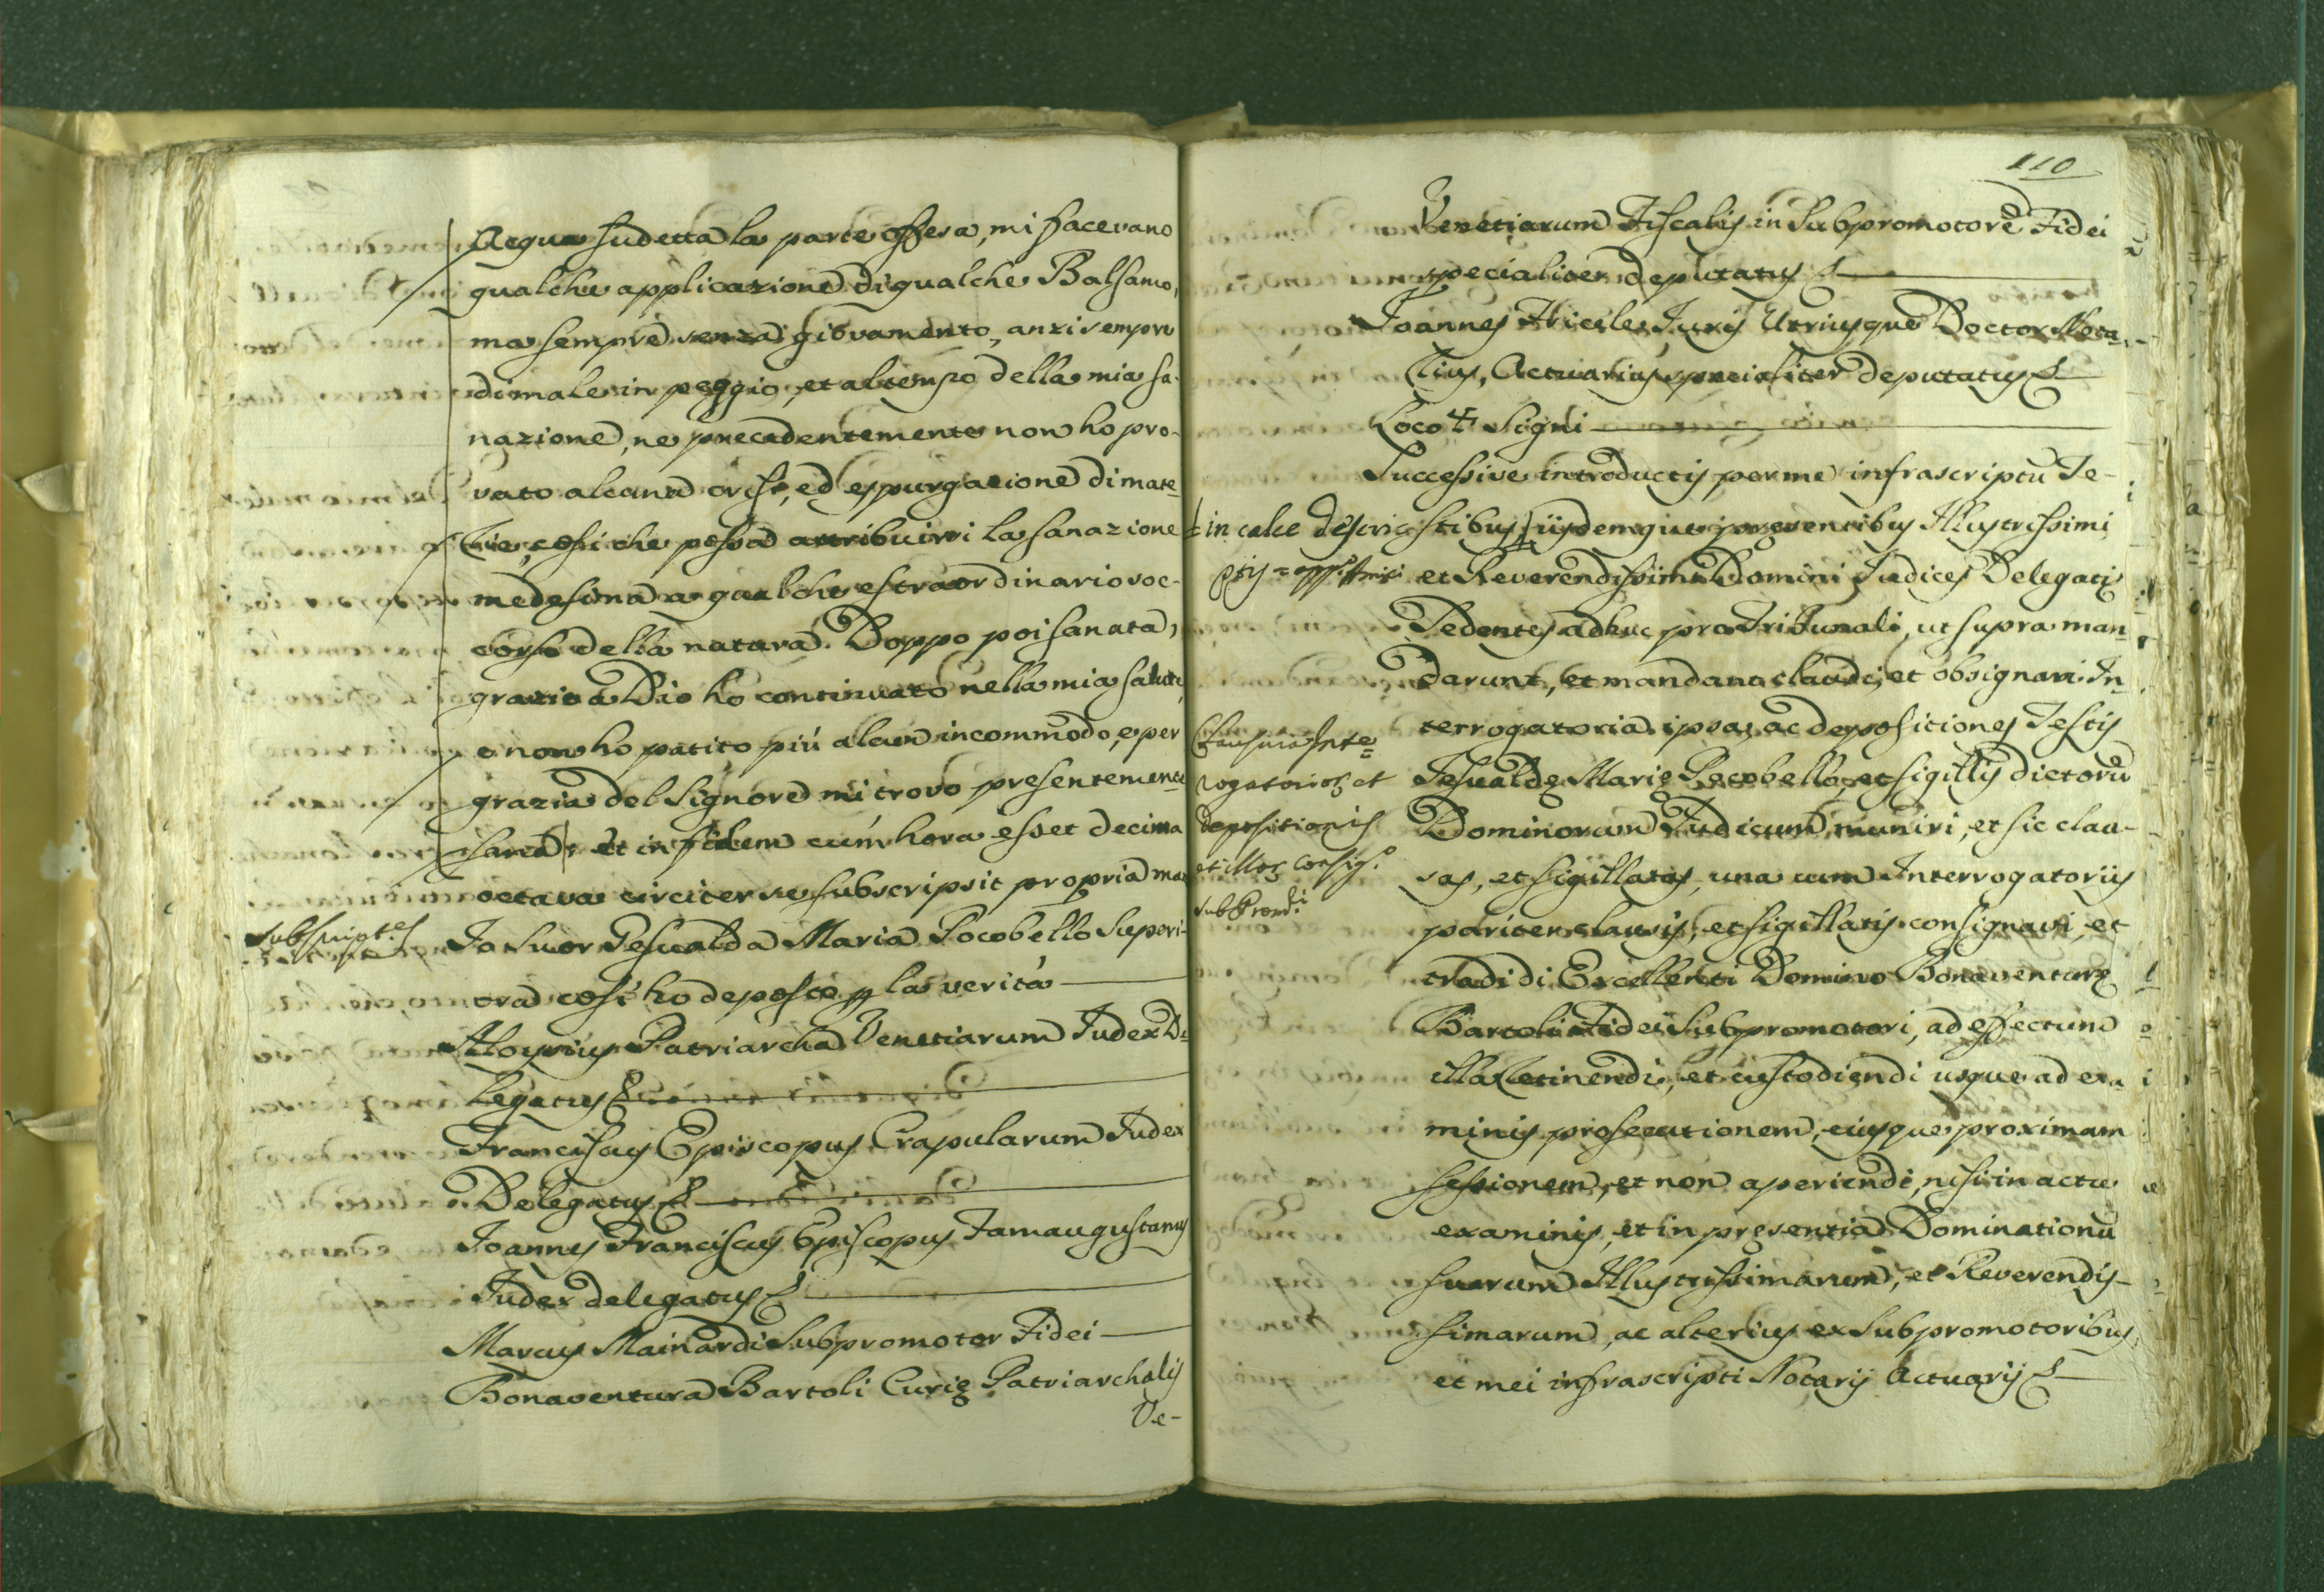 Acqua sudetta la parte offesa, mi facevano
qualche applicazione di qualche Balsamo,
ma sempre senza giovamento, anzi sempre
di male in peggio, et al tempo della mia sa-
nazione, ne precedentemente non ho pro-
vato alcuna crise, ed espurgazione di mate-
rie, cosi che possa attribuirsi la sanazione
medesima a qualche estraordinario soc-
corso della natura. Doppo poi sanata,
grazie a Dio ho continuato nella mia salute,
e non ho patito più alcun incommodo, e per
grazia del Signore mi trovo presentemente
sana; et in fidem cum hora esset decima
octava circiter se subscripsit propria manu
Subscriptes
Io Suor Gesualda Maria Pocobello Superi-
ora così ho deposto p la verità
Aloysius Patriarcha Venetiarum Judex De
legatus
Franciscus Episcopus Caprularum Judex
Delegatus
Joannes Franciscus Episcopus Famaugustanus
Judex delegatus
Marcus Mainardi Subpromotor Fidei
Bonaventura Bartoli Curię Patriarchalis
Ve-
110
Venetiarum Fiscalis in Subpromotorē Fidei
specialiter deputatus
Joannes Juris Utriusque Doctor Nota-
rius, Actuarius specialiter deputatus
Loco ✠ Signi
Successive introductis per me infrascriptū Te-
stibus iisdemque pręsentibus Illustrissimi
in calce descri
ptis
et Reverendissimi Domini Judices Delegati
Sedentes adhuc pro Tribunali, ut supra man
darunt, et mandant claudi, et obsignari In
terrogatoria ipsa, ac depositiones Testis
Gesualdę Marię Pocobello, et sigillis dictorū
Dominorum Judicum muniri, et sic clau-
sas, et sigillatas, una cum Interrogatoriis
pariter clausis, et sigillatis consignavi, et
tradidi Excellenti Domino Bonaventurę
Bartoli Fidei Subpromotori, ad effectum
illa retinendi, et custodiendi usque ad exa
minis prosecutionem, eiusque proximam
sessionem, et non aperiendi, nisi in actu
examinis, et in pręsentia Dominationū
suarum Illustrissimarum, et Reverendis-
simarum, ac alterius ex Subpromotoribus,
et mei infrascripti Notarij Actuarij
Clausura Inte
rogatorioȝ et
depositionis
et illoȝ consig.o